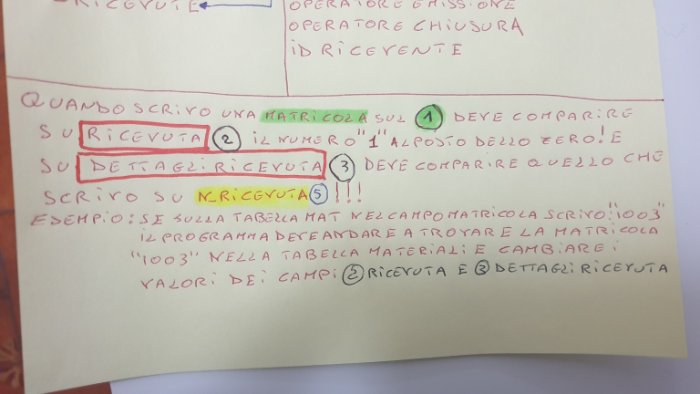 RICEVUTE
OPERATORE EMISSIONE
OPERATORE CHIUSURA
ID RICEVENTE
QUANDO SCRIVO UNA MATRICOLA SUL 1 DEVE COMPARIRE
SU RICEVUTA 2 IL NUMERO "1" AL POSTO DELLO ZERO! E
SU DETTAGLI RICEVUTA 3 DEVE COMPARIRE QUELLO CHE
SCRIVO SU N.RICEVUTA 5 !!!
ESEMPIO: SE SULLA TABELLA MAT NEL CAMPO MATRICOLA SCRIVO: "1003"
IL PROGRAMMA DEVE ANDARE A TROVARE LA MATRICOLA
"1003" NELLA TABELLA MATERIALI E CAMBIARE I
VALORI DEI CAMPI 2 RICEVUTA E 3 DETTAGLI RICEVUTA